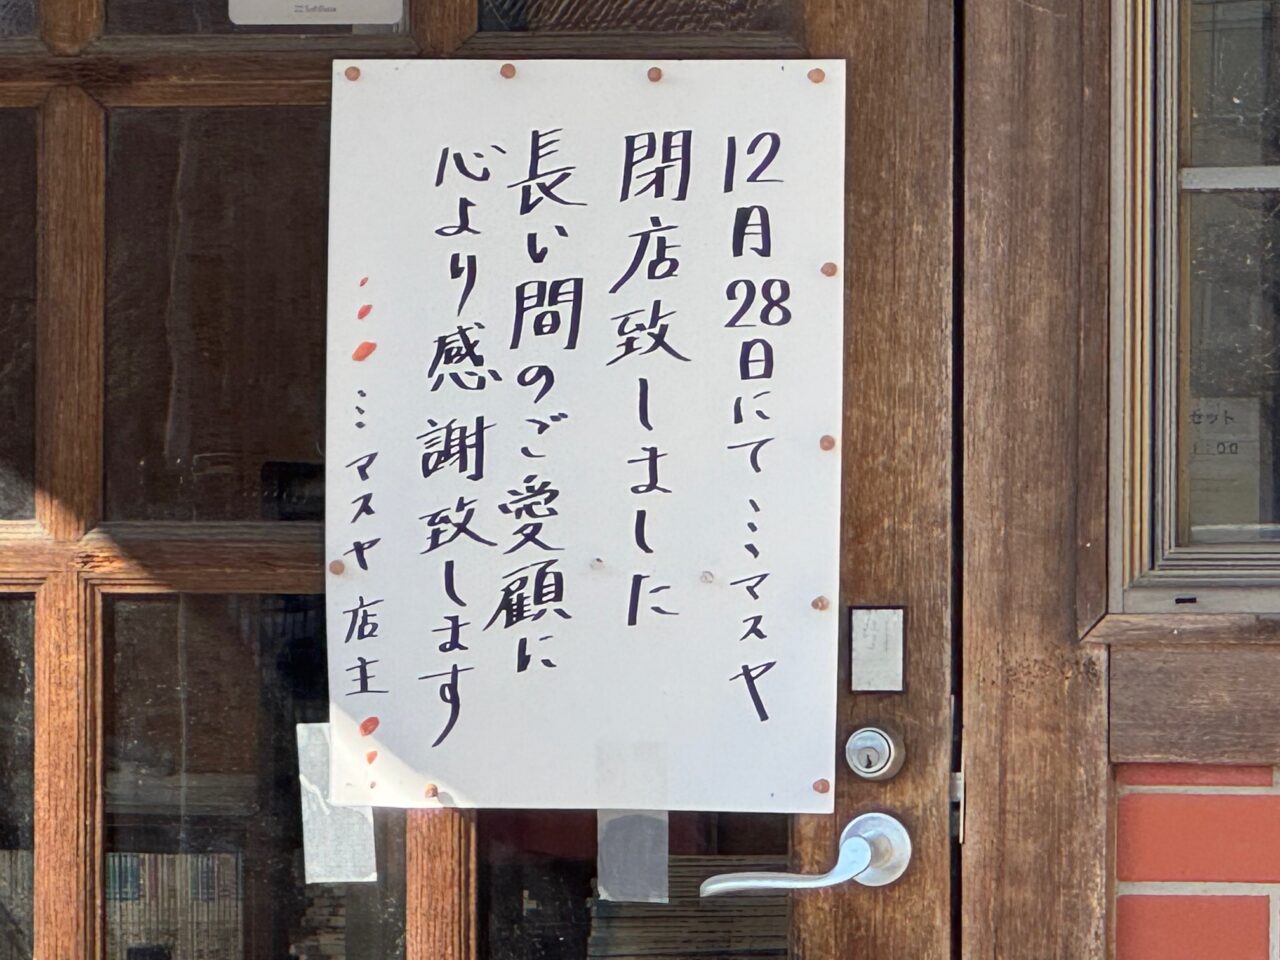 SoftBank
12月28日にて…ミマスヤ
閉店致しました
長い間のご愛顧に
心より感謝致します
…ミマスヤ店主
セット